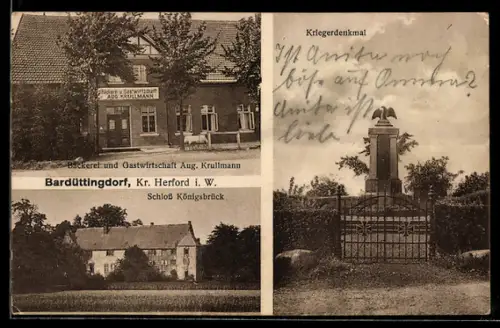 Bäckerei u. Gastwirtschaft
AUG. KRULLMANN
Bäckerei und Gastwirtschaft Aug. Krullmann
Bardüttingdorf, Kr. Herford i. W.
Schloß Königsbrück
Kriegerdenkmal
Ist Anita noch
böse auf Omma?
Anita ist